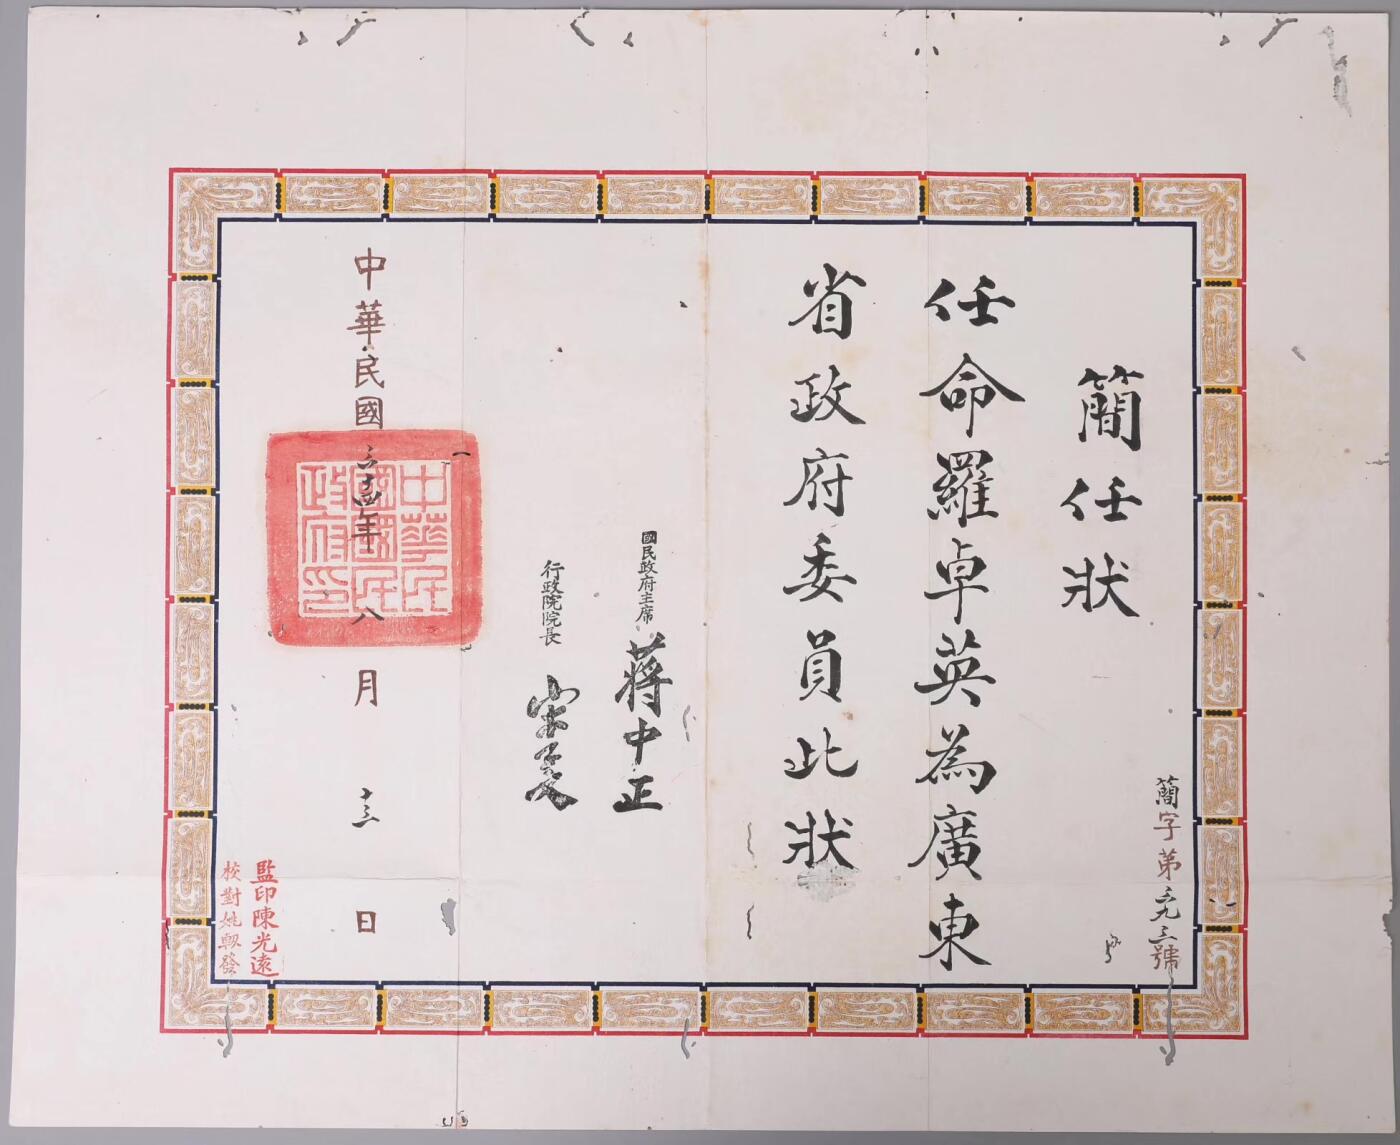 簡字第三九三號
簡任狀
任命羅卓英為廣東
省政府委員此狀
國民政府主席 蔣中正
行政院院長 宋子文
中華民國三十四年八月十三日
中華民
國國民
政府印
監印陳光遠
校對姚